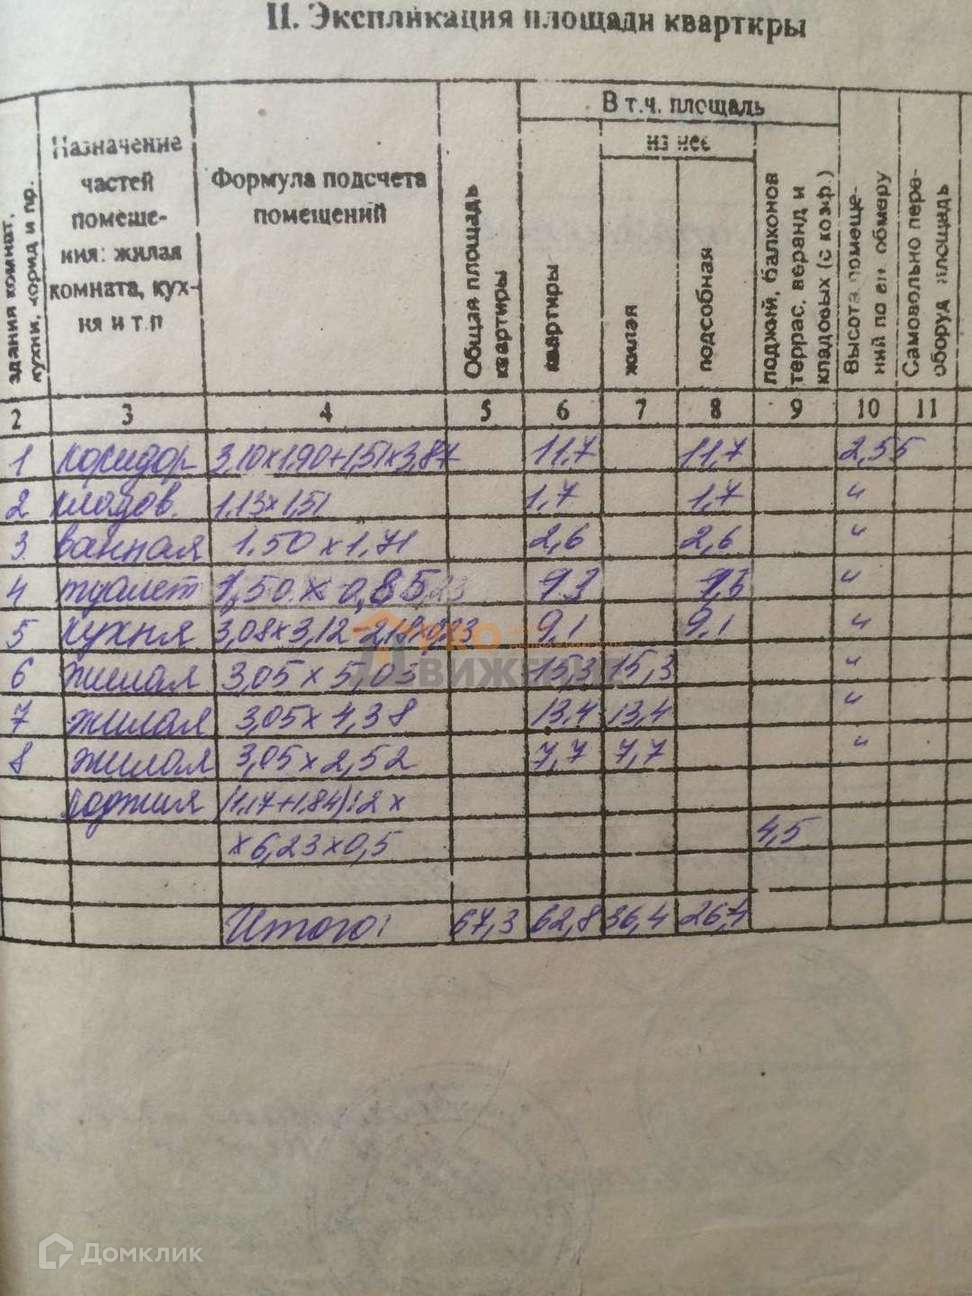 II. Экспликация площади квартиры
здания комнат, кухни, корид и пр.
Назначение частей помеще- ния: жилая комната, кух- ня и т.п
Формула подсчета помещений
Общая площадь квартиры
В т.ч. площадь
из нее
квартиры
жилая
подсобная
лоджий, балконов террас, веранд и кладовых (с коэф.)
Высота помеще- ний по вн обмеру
Самовольно пере- оборуд площадь
2 3 4 5 6 7 8 9 10 11
1 коридор 3,10x1,90+1,51x3,87 11,7 11,7 2,55
2 кладов. 1,13x1,51 1,7 1,7 "
3 ванная 1,50x1,71 2,6 2,6 "
4 туалет 1,50x0,85 1,3 "
5 кухня 3,08x3,12-2,19x0,23 9,1 9,1 "
6 жилая 3,05x5,03 15,3 15,3 "
7 жилая 3,05x4,38 13,4 13,4 "
8 жилая 3,05x2,52 7,7 7,7 "
лоджия (1,17+1,84):2x
x6,23x0,5 4,5
Итого: 67,3 62,8 36,4 26,4
ДВИЖЕНИЕ
Домклик